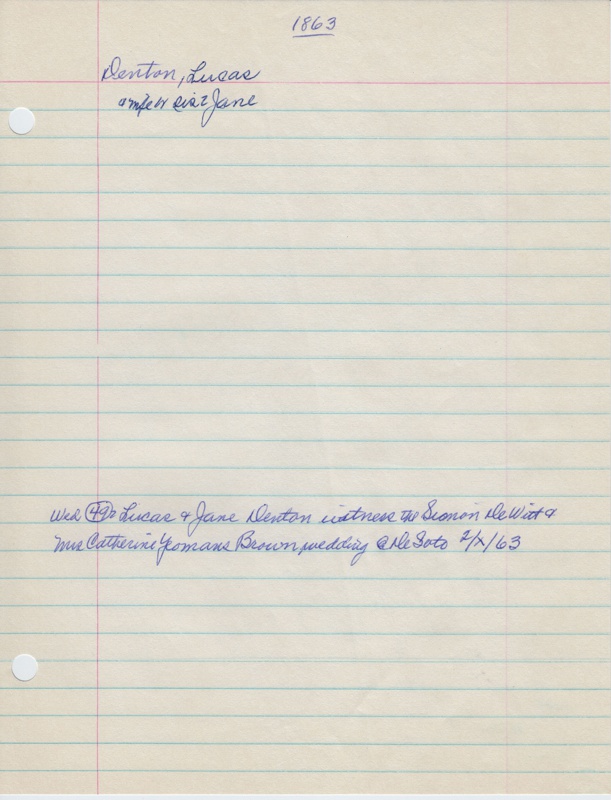 1863
Denton, Lucas
a wife or sis? Jane
Wed 49b Lucas & Jane Denton witness the Simon DeWitt &
Mrs Catherine Yeomans Brown wedding @ De Soto 2/X/63